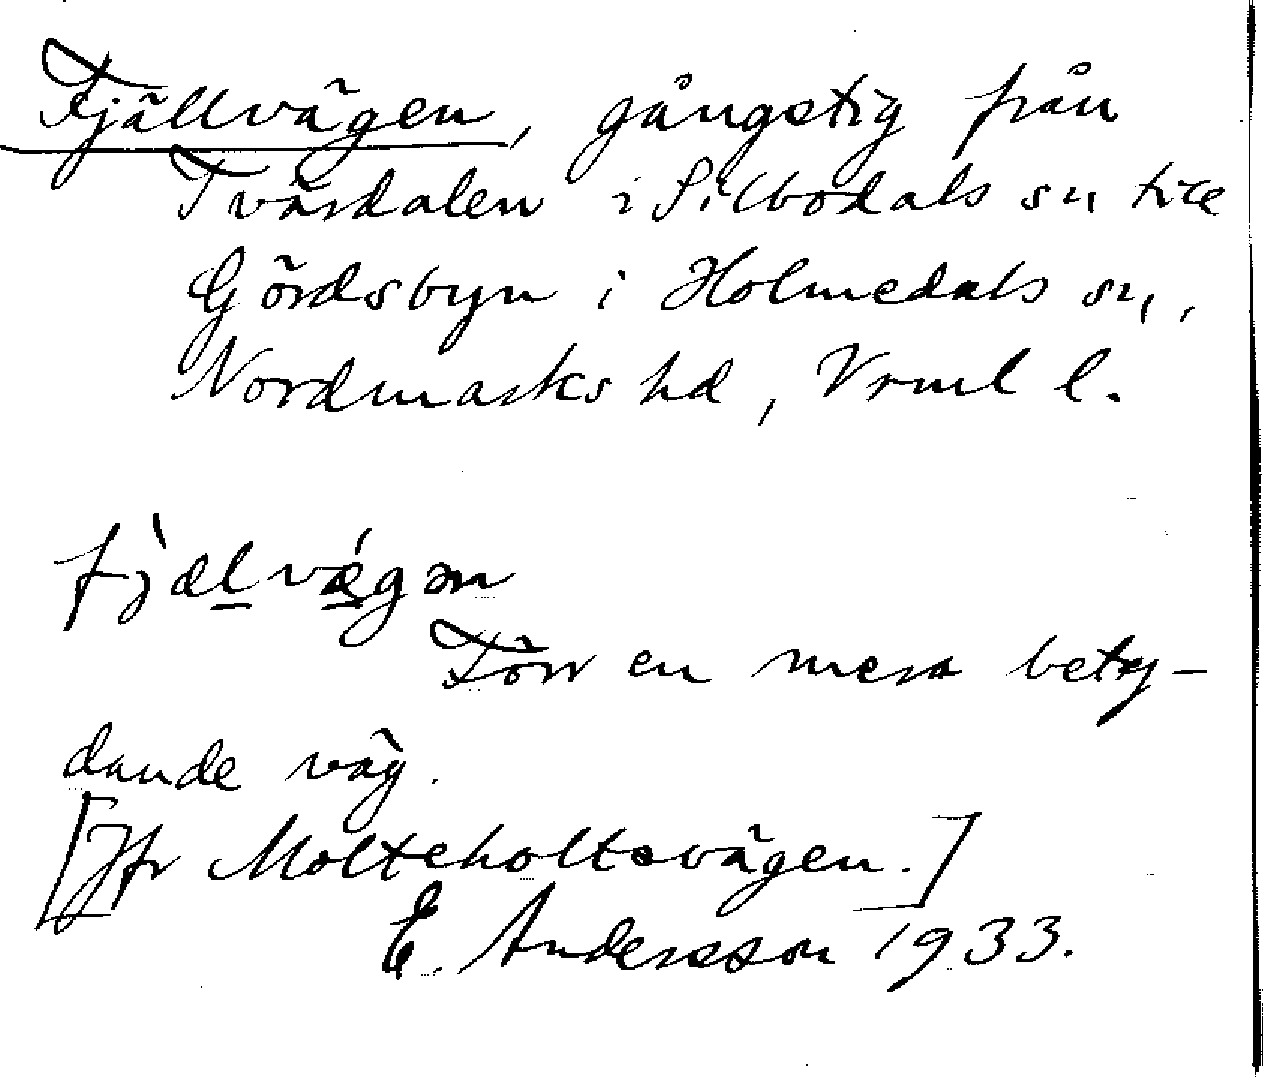 Fjällvägen, gångstig från
Tvärdalen i Silbodals sn till
Gördsbyn i Holmedals sn,
Nordmarks hd, Vrml l.
fj̀ælvǽgən
Förr en mera bety-
dande väg.
[Jfr Molteholtsvägen.]
E. Andersson 1933.